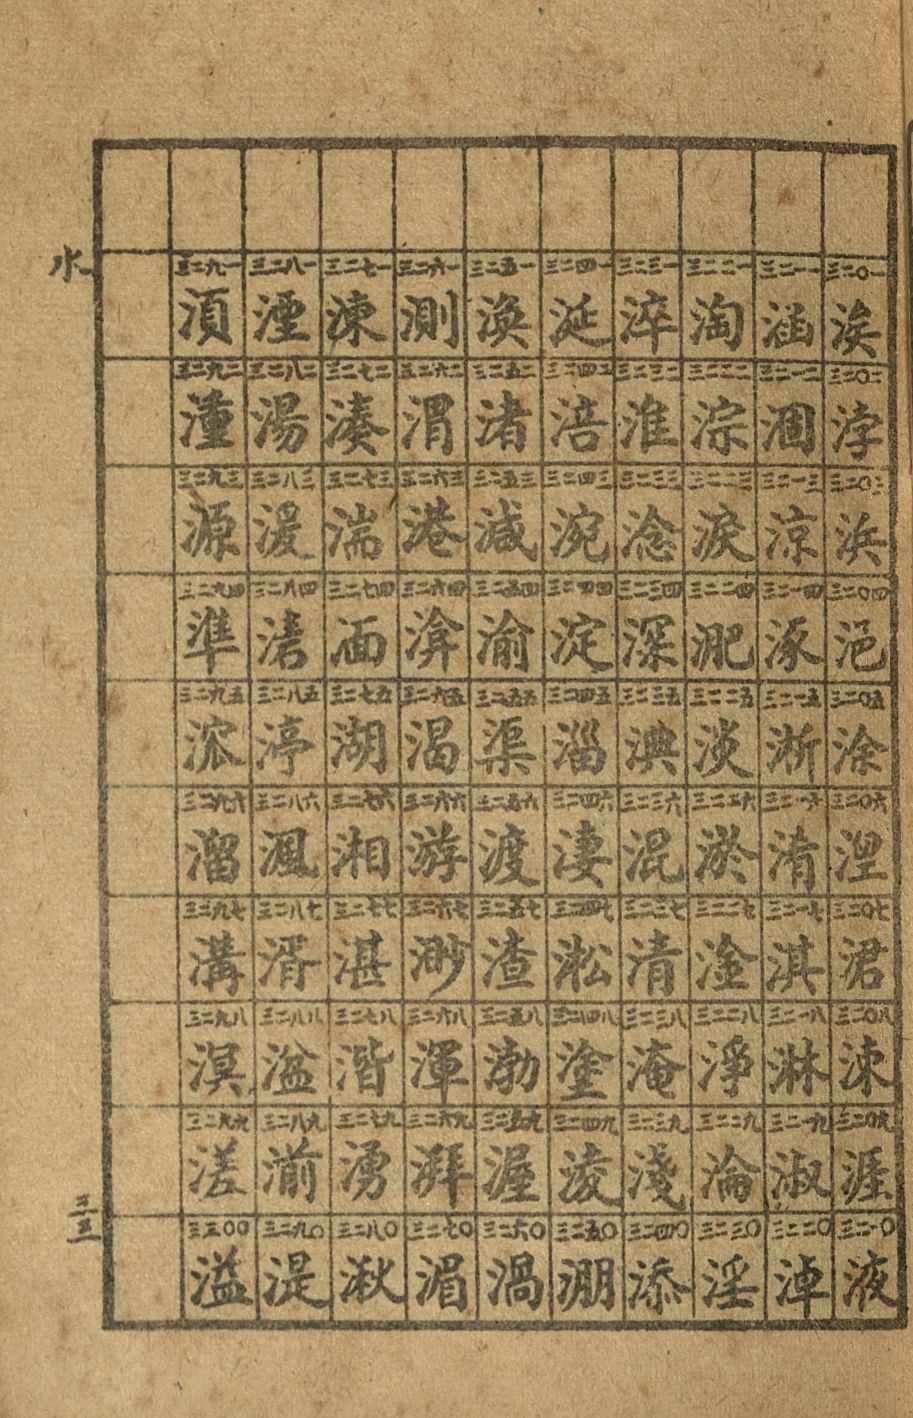 水
三二〇一
涘
三二〇二
浡
三二〇三
浜
三二〇四
浥
三二〇五
涂
三二〇六
涅
三二〇七
涒
三二〇八
涑
三二〇九
涯
三二一〇
液
三二一一
涵
三二一二
涸
三二一三
涼
三二一四
涿
三二一五
淅
三二一六
淆
三二一七
淇
三二一八
淋
三二一九
淑
三二二〇
淖
三二二一
淘
三二二二
淙
三二二三
淚
三二二四
淝
三二二五
淡
三二二六
淤
三二二七
淦
三二二八
淨
三二二九
淪
三二三〇
淫
三二三一
淬
三二三二
淮
三二三三
淰
三二三四
深
三二三五
淟
三二三六
混
三二三七
清
三二三八
淹
三二三九
淺
三二四〇
添
三二四一
涎
三二四二
涪
三二四三
涴
三二四四
淀
三二四五
淄
三二四六
淒
三二四七
淞
三二四八
塗
三二四九
淩
三二五〇
淜
三二五一
渙
三二五二
渚
三二五三
減
三二五四
渝
三二五五
渠
三二五六
渡
三二五七
渣
三二五八
渤
三二五九
渥
三二六〇
渦
三二六一
測
三二六二
渭
三二六三
港
三二六四
渰
三二六五
渴
三二六六
游
三二六七
渺
三二六八
渾
三二六九
湃
三二七〇
湄
三二七一
湅
三二七二
湊
三二七三
湍
三二七四
湎
三二七五
湖
三二七六
湘
三二七七
湛
三二七八
湝
三二七九
湧
三二八〇
湫
三二八一
湮
三二八二
湯
三二八三
湲
三二八四
三二八五
渟
三二八六
渢
三二八七
湑
三二八八
湓
三二八九
湔
三二九〇
湜
三二九一
湏
三二九二
湩
三二九三
源
三二九四
準
三二九五
溛
三二九六
溜
三二九七
溝
三二九八
溟
三二九九
溠
三三〇〇
溢
三三